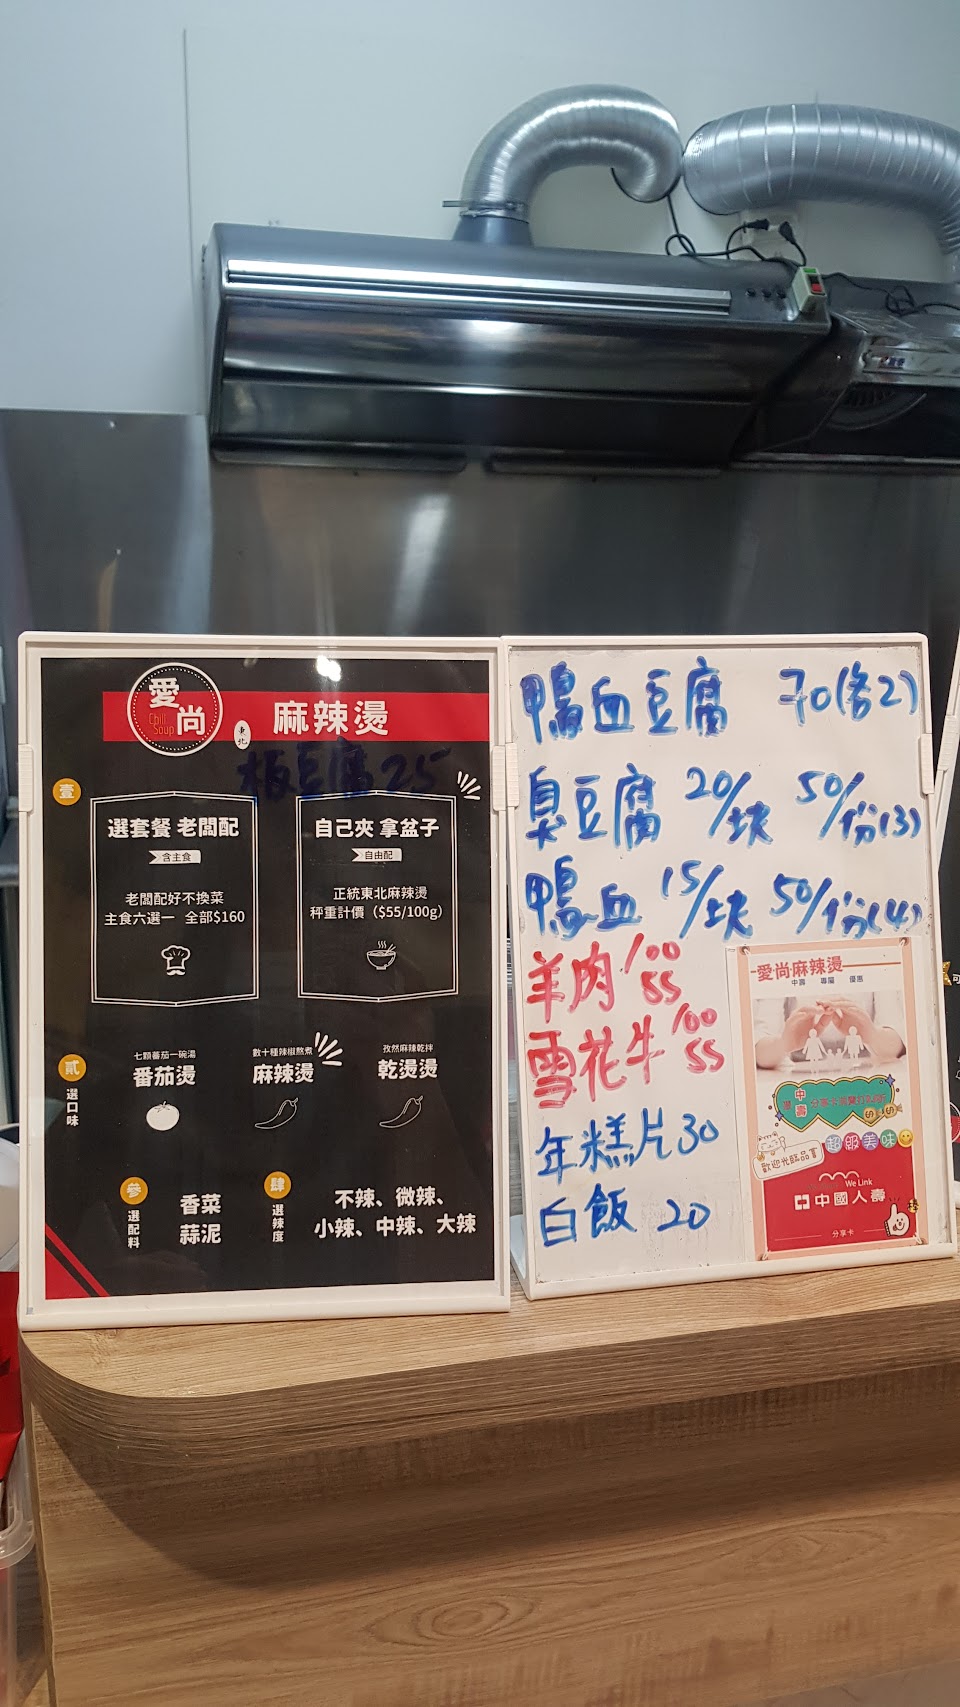 愛尚
Chill Soup
東北
麻辣燙
板豆腐25
壹
選套餐 老闆配
含主食
老闆配好不換菜
主食六選一 全部$160
自己夾 拿盆子
自由配
正統東北麻辣燙
秤重計價（$55/100g）
貳
選口味
七顆蕃茄一碗湯
番茄燙
數十種辣椒熬煮
麻辣燙
孜然麻辣乾拌
乾燙燙
參
選配料
香菜
蒜泥
肆
選辣度
不辣、微辣、
小辣、中辣、大辣
鴨血豆腐 70(各2)
臭豆腐 20/塊 50/份(3)
鴨血 15/塊 50/份(4)
羊肉 100 55
雪花牛 100 55
年糕片 30
白飯 20
愛尚麻辣燙
中壽 專屬 優惠
中壽
歡迎光臨品嘗
超級美味
We Link
中國人壽
分享卡